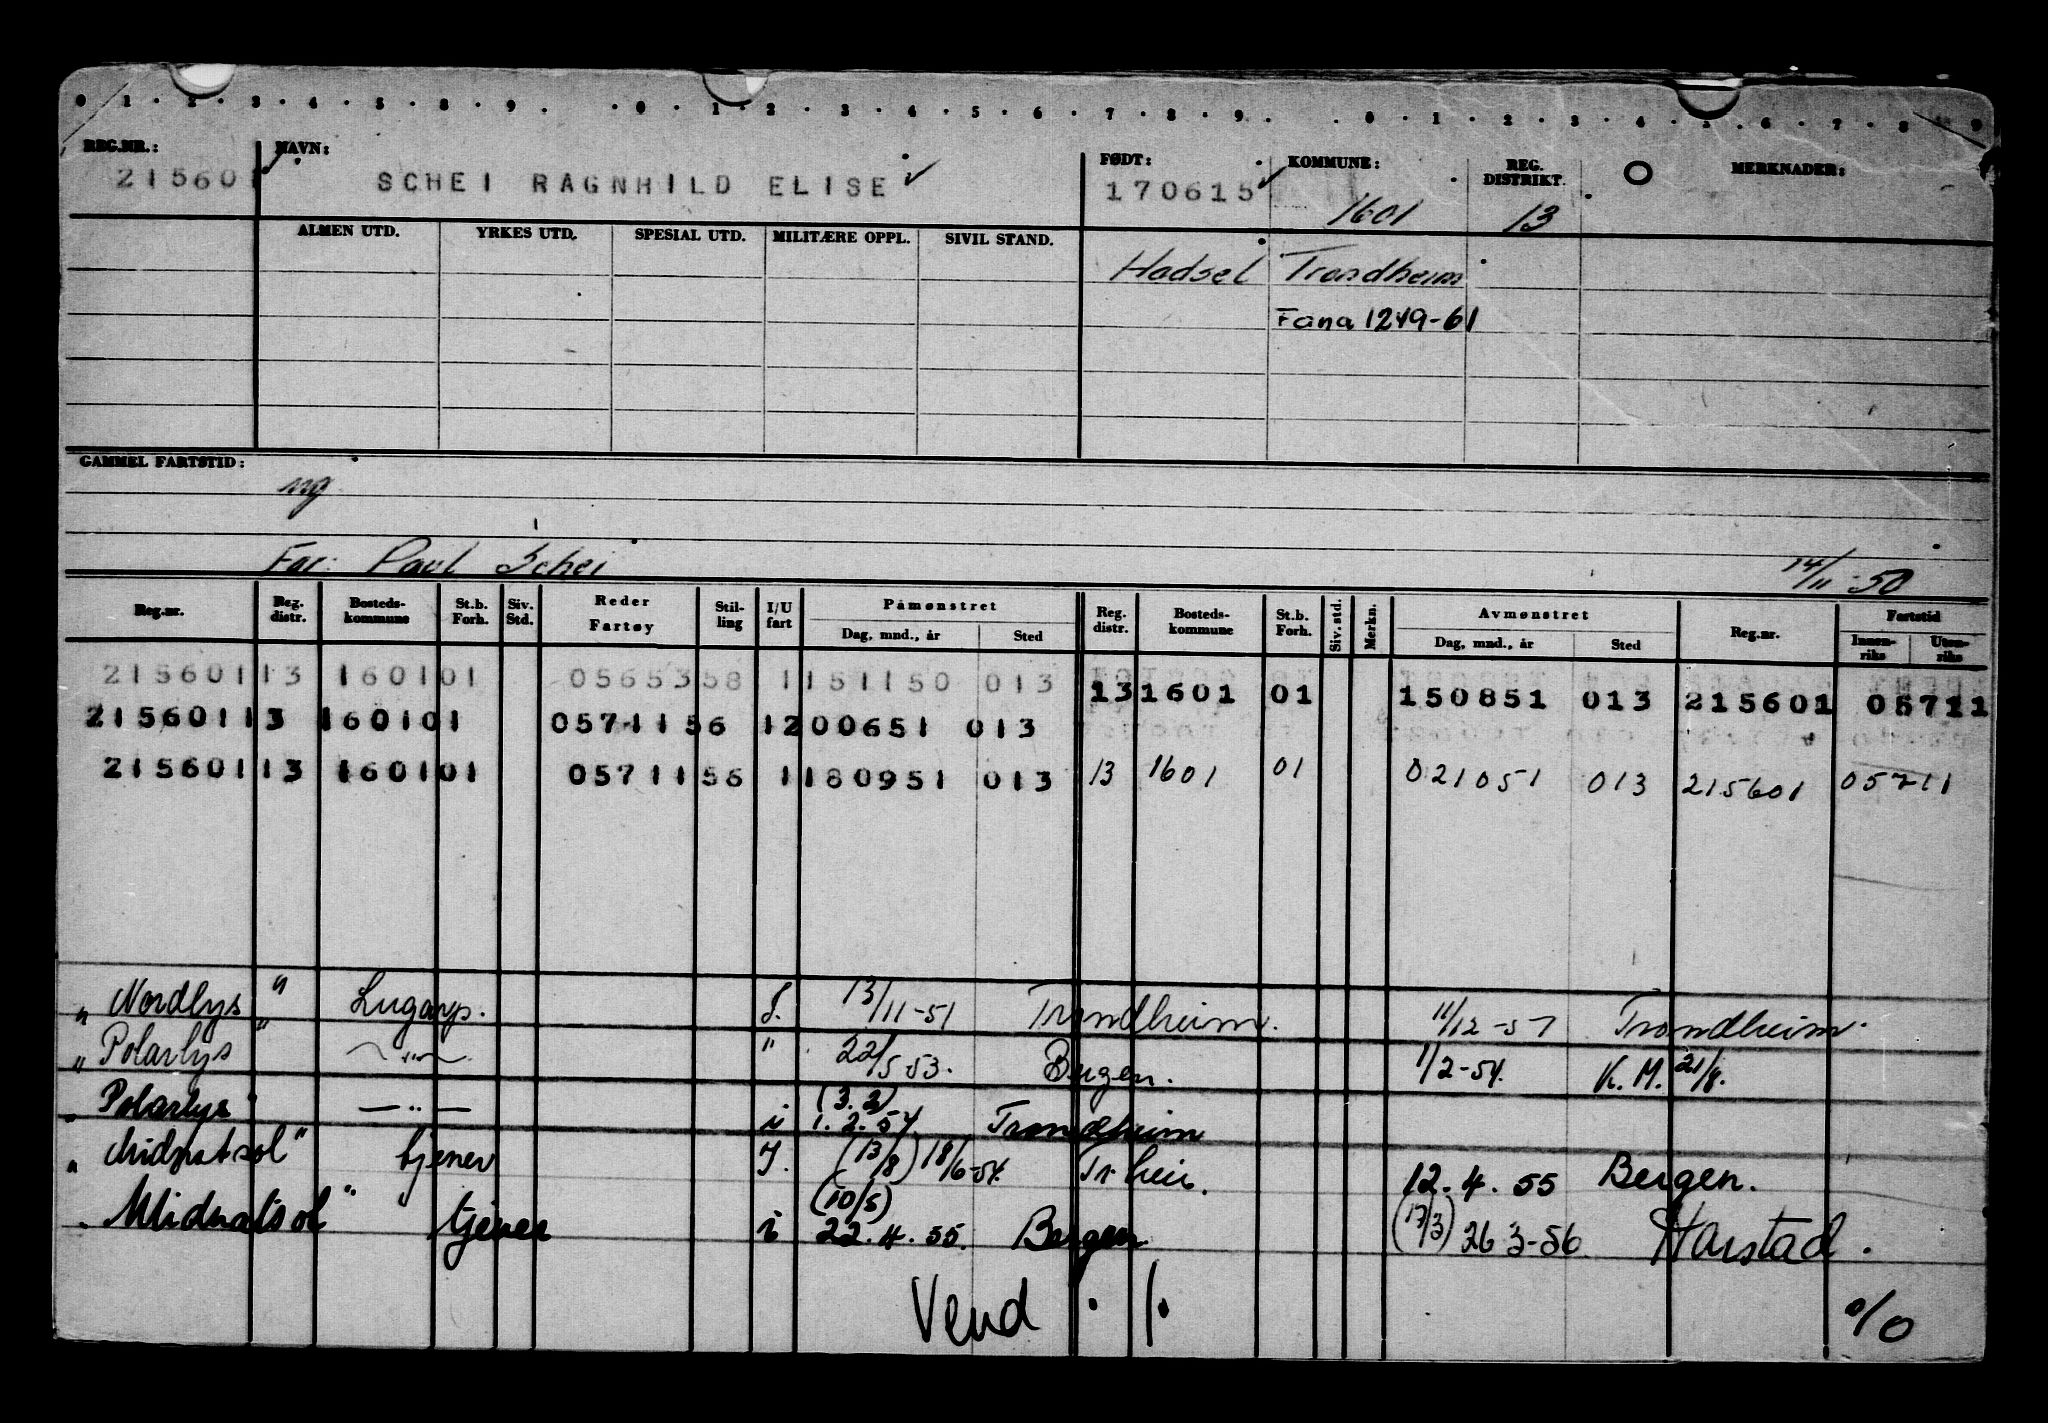 0 1 2 3 4 5 8 9 0 1 2 3 4 5 6 7 8 9 0 1 2 3 4 5 6 7 8 9
REG.NR.: NAVN: FØDT: KOMMUNE: REG. DISTRIKT. MERKNADER:
215601 SCHEI RAGNHILD ELISE 170615 1601 13
ALMEN UTD. YRKES UTD. SPESIAL UTD. MILITÆRE OPPL. SIVIL STAND.
Hadsel Trondheim
Fana 1249-61
GAMMEL FARTSTID:
ng
Far: Paul Schei 14/11-50
Reg.nr. Reg. distr. Bosteds-kommune St.b. Forh. Siv. Std. Reder Fartøy Stil-ling I/U fart Påmønstret Dag, mnd., år Sted Reg. distr. Bosteds-kommune St.b. Forh. Siv. std. Merkn. Avmønstret Dag, mnd., år Sted Reg.nr. Fartstid Innen-riks Uten-riks
215601 13 1601 01 05653 58 1 151150 013 13 1601 01 150851 013 215601 05711
215601 13 1601 01 05711 56 1 200651 013
215601 13 1601 01 05711 56 1 180951 013 13 1601 01 021051 013 215601 05711
"Nordlys" Lugarp. I. 13/11-51 Trondheim. 11/12-51 Trondheim.
"Polarlys" — " — " 22/5 53. Bergen. 1/2-54. K.M. 21/8.
"Polarlys" — " — i (3.2) 1.2.54 Trondheim
"Midnatsol" tjener I. (13/8) 18/6-54. Tr.heim. 12.4.55 Bergen.
"Midnatsol" tjener i (10/5) 22.4.55. Bergen (17/3) 26 3-56 Harstad.
Vend ./.
0/0